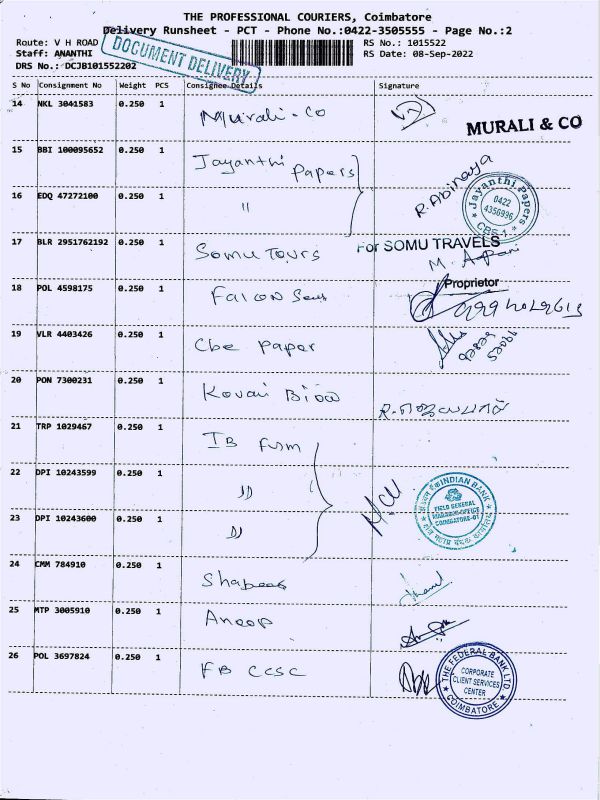 THE PROFESSIONAL COURIERS, Coimbatore
Delivery Runsheet - PCT - Phone No.:0422-3505555 - Page No.:2
Route: V H ROAD
RS No.: 1015522
Staff: ANANTHI
RS Date: 08-Sep-2022
DRS No.: DCJB101552202
DOCUMENT DELIVERY
S No Consignment No Weight PCS Consignee Details Signature
14 NKL 3041583 0.250 1 Murali - co
MURALI & CO
15 BBI 100095652 0.250 1 Jayanthi Papers
R. Abinaya
Jayanthi Papers
0422
4356996
CBE-1
16 EDQ 47272100 0.250 1 "
17 BLR 2951762192 0.250 1 Somu Tours
For SOMU TRAVELS
Proprietor
18 POL 4598175 0.250 1 Falcon
19 VLR 4403426 0.250 1 Cbe Paper
20 PON 7300231 0.250 1 Kovai
21 TRP 1029467 0.250 1 IB
22 DPI 10243599 0.250 1 "
INDIAN BANK
FIELD GENERAL
COIMBATORE-01
23 DPI 10243600 0.250 1 "
24 CMM 784910 0.250 1
25 MTP 3005910 0.250 1 Anoop
26 POL 3697824 0.250 1 FB CCSC
THE FEDERAL BANK LTD
CORPORATE
CLIENT SERVICES
CENTER
COIMBATORE